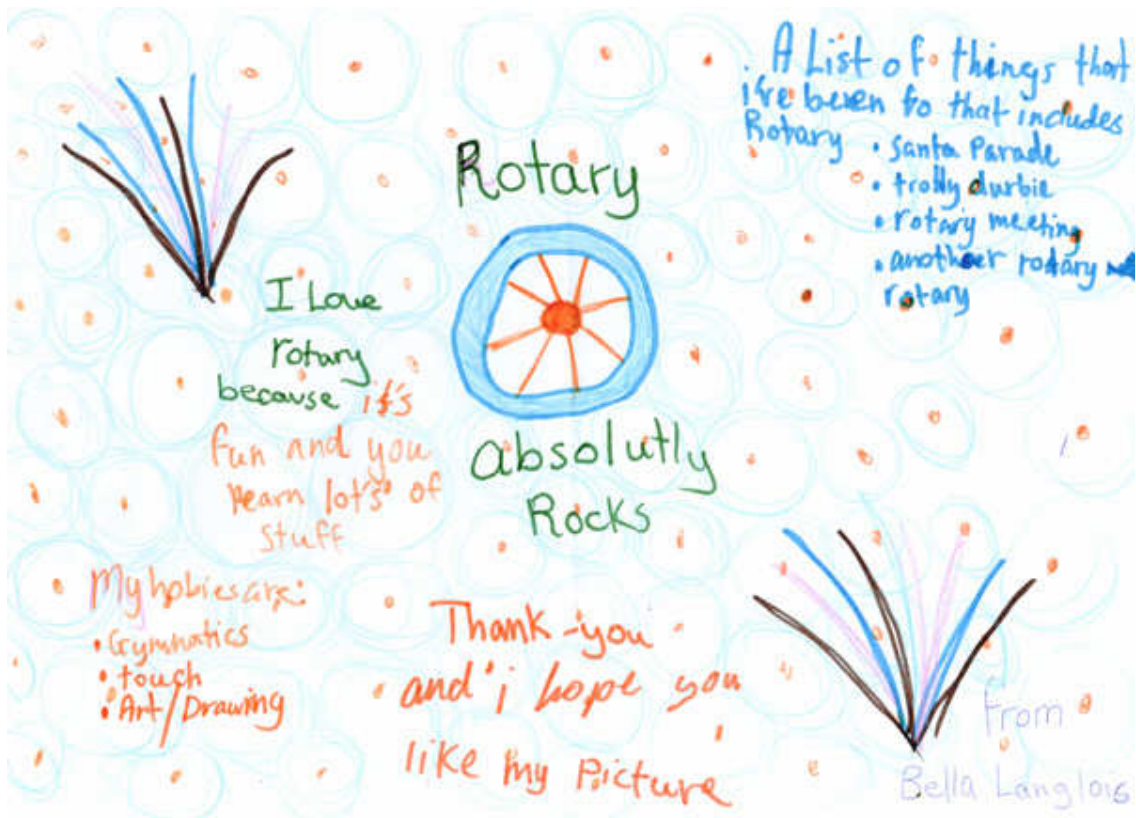 A List of things that
i're beren to that includes
Rotary
• santa Parade
• trolly durbie
• rotary meeting
• anothoer rotary
rotary
Rotary
I Love
rotary
because it's
fun and you
learn lot's of
stuff
Absolutly
Rocks
My hobies are:
• Gymnatics
• touch
• Art/Drawing
Thank-you
and i hope you
like my Picture
From
Bella Langlois